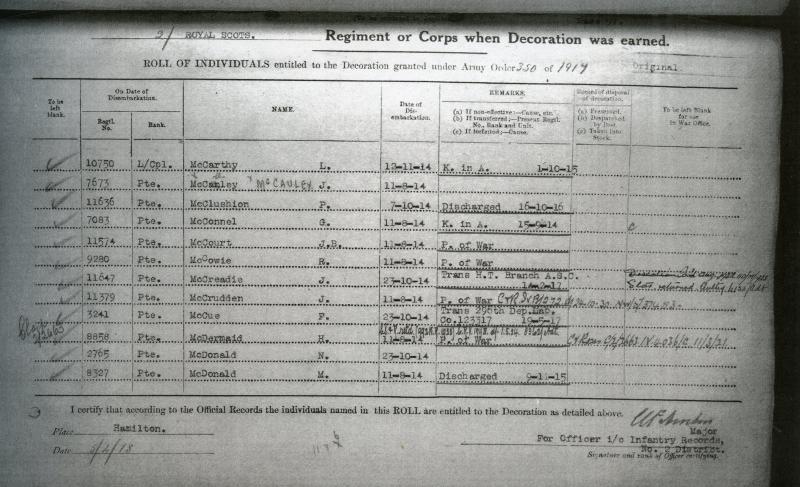 2/ ROYAL SCOTS. Regiment or Corps when Decoration was earned.
ROLL OF INDIVIDUALS entitled to the Decoration granted under Army Order 350 of 1917 Original.
To be left blank.
On Date of Disembarkation.
Regtl. No.
Rank.
NAME.
Date of Disembarkation.
REMARKS.
(a) If non-effective:—Cause, etc.
(b) If transferred;—Present Regtl. No., Rank and Unit.
(c) If forfeited;—Cause.
Record of disposal of decoration.
(a) Presented.
(b) Despatched by Post.
(c) Taken into Stock.
To be left Blank for use in War Office.
10750 L/Cpl. McCarthy L. 12-11-14 K. in A. 1-10-15
7673 Pte. McCauley J. 11-8-14
McCAULEY
11636 Pte. McClushion P. 7-10-14 Discharged 16-10-16
7083 Pte. McConnel G. 11-8-14 K. in A. 15-9-14 c
11574 Pte. McCourt J.B. 11-8-14 P. of War
9280 Pte. McGowie R. 11-8-14 P. of War
11647 Pte. McCreadie J. 23-10-14 Trans H.T. Branch A.S.C. 14-2-17
11379 Pte. McCrudden J. 11-8-14 P. of War
3241 Pte. McCue F. 23-10-14 Trans 296th Dep. Lab. Co. 123317 19-5-17
8858 Pte. McDermaid H. 11-8-14 P. of War
2765 Pte. McDonald N. 23-10-14
8327 Pte. McDonald M. 11-8-14 Discharged 9-11-15
I certify that according to the Official Records the individuals named in this ROLL are entitled to the Decoration as detailed above.
Place Hamilton.
Date 5/2/18
Major
For Officer i/c Infantry Records,
No. 2 District.
Signature and rank of Officer certifying.